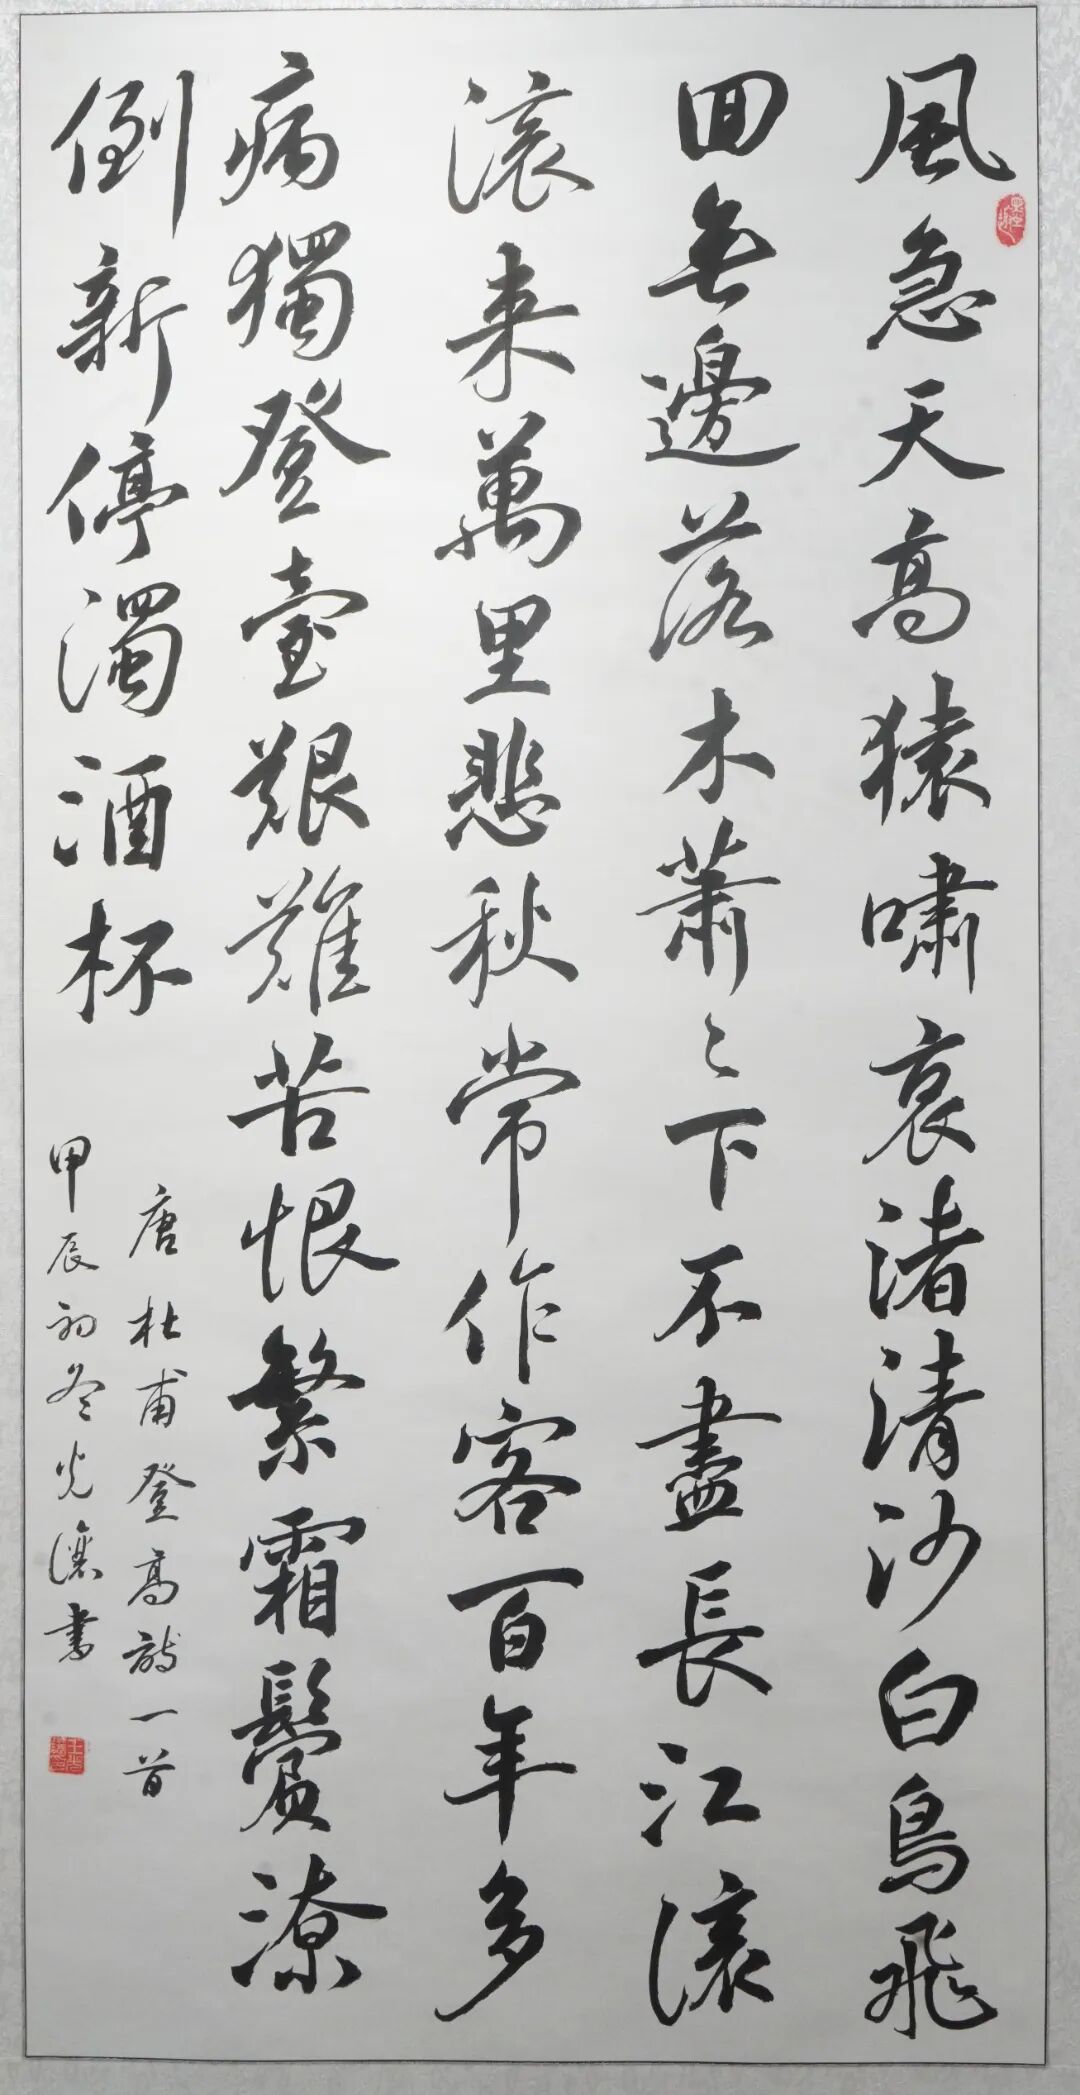 風急天高猿嘯哀渚清沙白鳥飛
回無邊落木蕭〻下不盡長江滾
滾来萬里悲秋常作客百年多
病獨登臺艱難苦恨繁霜鬢潦
倒新停濁酒杯
唐杜甫登高詩一首
甲辰初冬光書